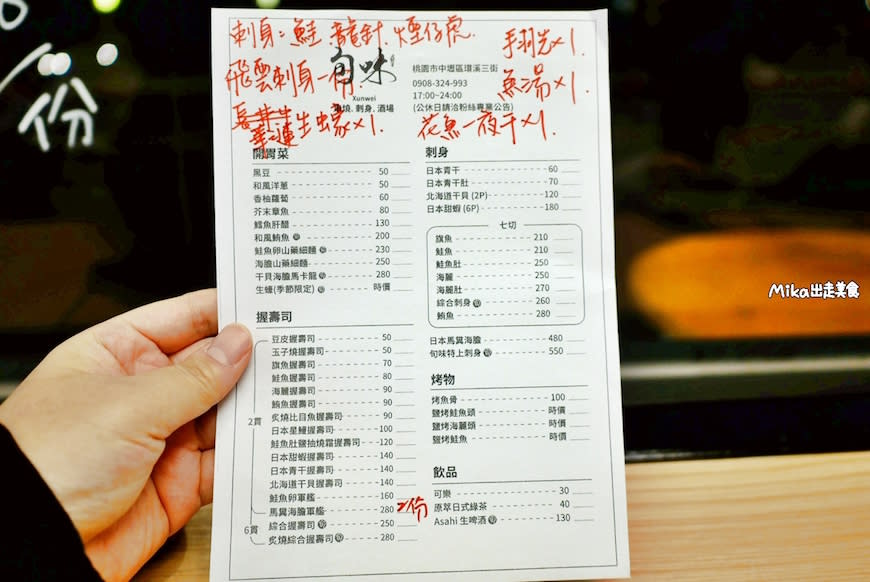 份
刺身：鮭 龍針. 煙仔虎
飛雲刺身一份.
長蓮生蚵×1.
手羽先×1.
魚湯×1.
花魚一夜干×1.
旬味
Xunwei
燒.刺身.酒場
桃園市中壢區環溪三街
0908-324-993
17:00~24:00
(公休日請洽粉絲專業公告)
開胃菜
黑豆 50
和風洋蔥 50
香柚蘿蔔 60
芥末章魚 80
鱈魚肝醋 130
和風鮪魚 200
鮭魚卵山藥細麵 230
海膽山藥細麵 250
干貝海膽馬卡龍 280
生蠔(季節限定) 時價
握壽司
2貫
豆皮握壽司 50
玉子燒握壽司 50
旗魚握壽司 70
鮭魚握壽司 80
海鱺握壽司 90
鮪魚握壽司 90
炙燒比目魚握壽司 90
日本星鰻握壽司 100
鮭魚肚鹽抽燒霜握壽司 120
日本甜蝦握壽司 140
日本青干握壽司 140
北海道干貝握壽司 140
鮭魚卵軍艦 160
馬糞海膽軍艦 280 2份
6貫
綜合握壽司 250
炙燒綜合握壽司 280
刺身
日本青干 60
日本青干肚 70
北海道干貝 (2P) 120
日本甜蝦 (6P) 180
七切
旗魚 210
鮭魚 210
鮭魚肚 250
海鱺 250
海鱺肚 270
綜合刺身 260
鮪魚 280
日本馬糞海膽 480
旬味特上刺身 550
烤物
烤魚骨 100
鹽烤鮭魚頭 時價
鹽烤海鱺頭 時價
鹽烤鮭魚 時價
飲品
可樂 30
原萃日式綠茶 40
Asahi 生啤酒 130
Mika出走美食